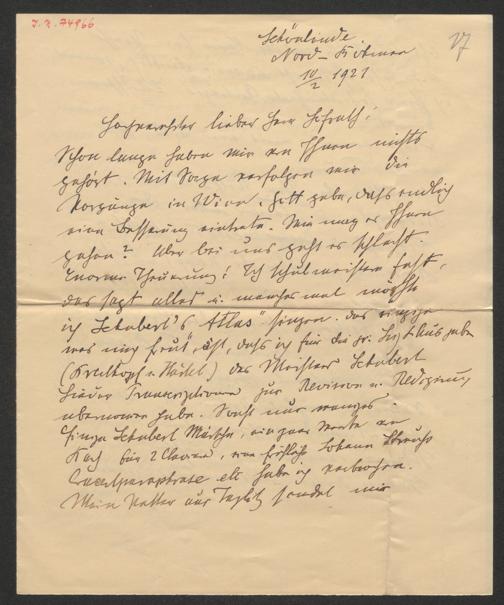 I.N. 74966
17
Schönlinde
Nord-Böhmen
10/2 1921
Hochverehrter lieber Herr Hofrath!
Schon lange haben wir von Ihnen nichts
gehört. Mit Sorge verfolgen wir die
Vorgänge in Wien. Gott gebe, daß endlich
eine Besserung eintrete. Wie mag es Ihnen
gehen? Aber bei uns geht es schlecht.
Enorme Theuerung! Ich schulmeistere fest,
das sagt alles u. manches mal möchte
ich Schubert's "Atlas" singen. Das einzige
was mich freut, ist, daß ich für die gr. Liszt Ausgabe
(Breitkopf u. Härtel) des Meisters Schubert
Lieder Transcriptionen zur Revision u.
übernommen habe. Sonst nur weniges.
Einige Schubert Märsche, ein paar Werke von
Bach für 2 Claviere, eine Johann Strauss
habe ich verbrochen.
Mein Vetter aus Teplitz sendet mir